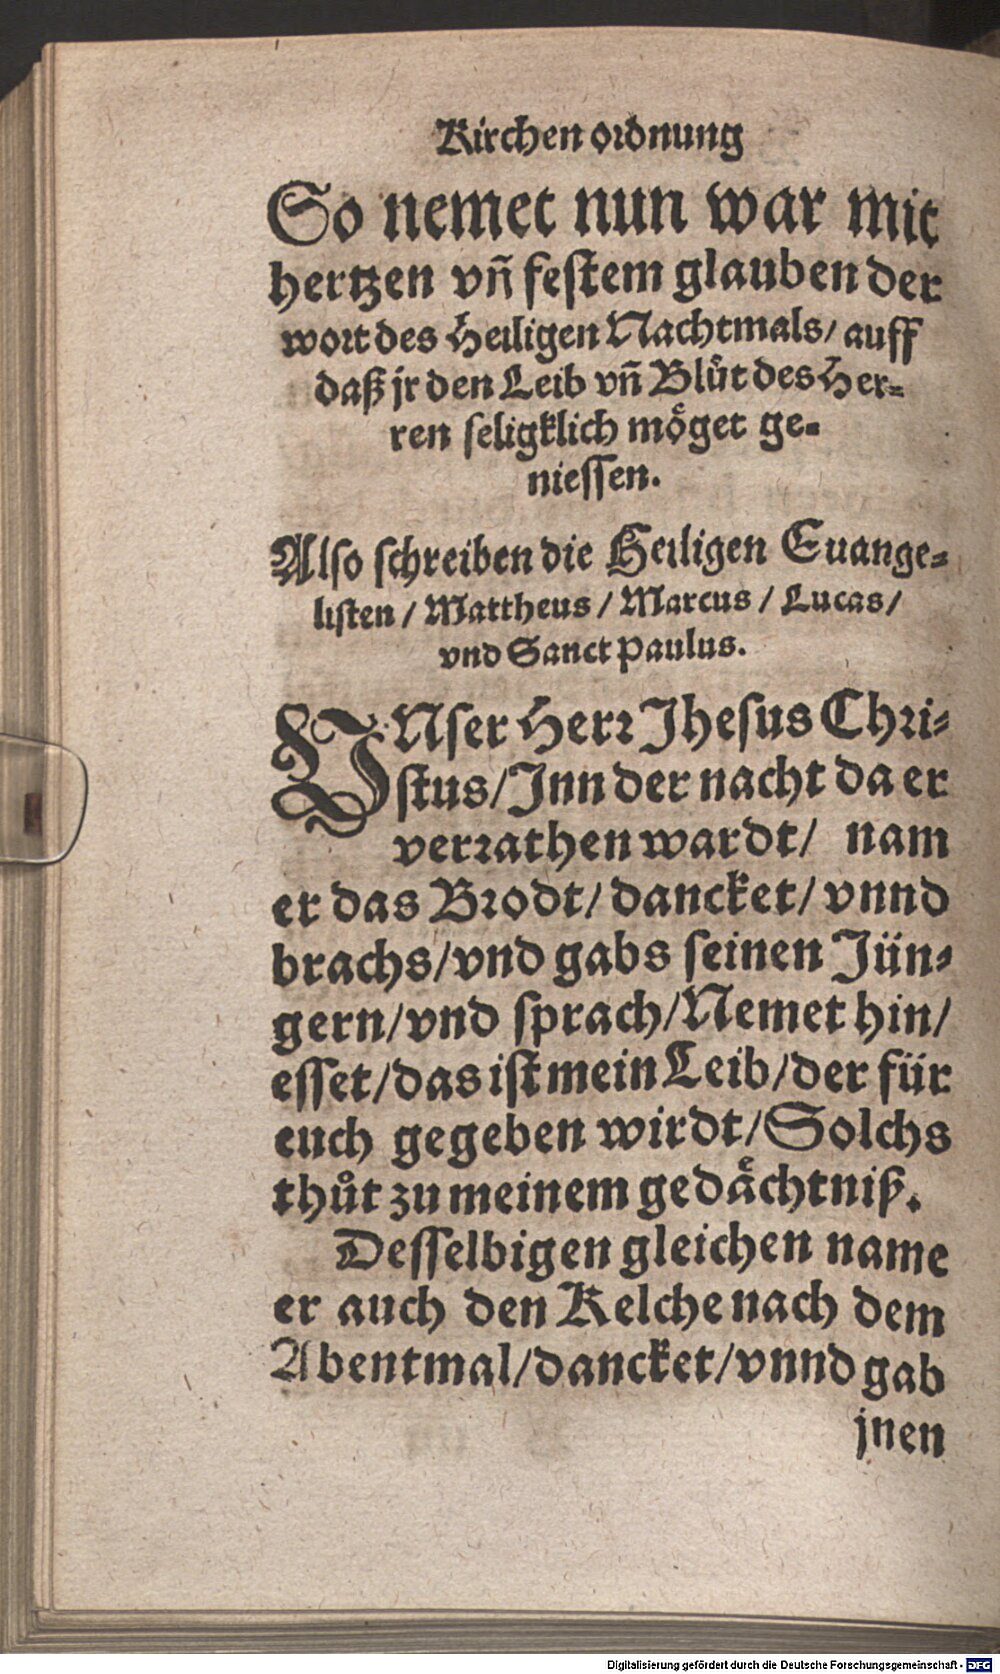 Kirchen ordnung
So nemet nun war mit
hertzen vñ festem glauben der
wort des Heiligen Nachtmals/ auff
daß jr den Leib vñ Blůt des Her-
ren seligklich möget ge-
niessen.
Also schreiben die Heiligen Euange-
listen / Mattheus / Marcus / Lucas /
vnd Sanct Paulus.
VNser Herr Jhesus Chri-
stus/Jnn der nacht da er
verrathen wardt/ nam
er das Brodt/dancket/vnnd
brachs/vnd gabs seinen Jün-
gern/vnd sprach/Nemet hin/
esset/das ist mein Leib/der für
euch gegeben wirdt/Solchs
thůt zu meinem gedächtniß.
Desselbigen gleichen name
er auch den Kelche nach dem
Abentmal/dancket/vnnd gab
jnen
Digitalisierung gefördert durch die Deutsche Forschungsgemeinschaft - DFG